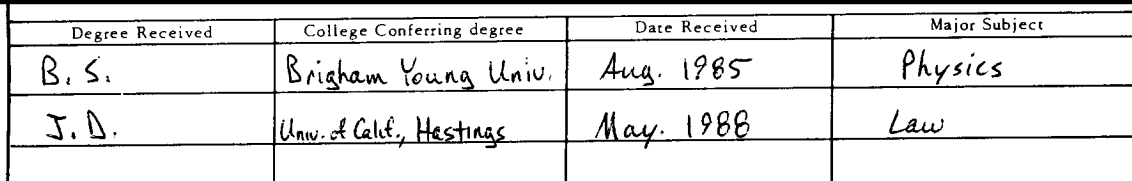 Degree Received College Conferring degree Date Received Major Subject
B. S. Brigham Young Univ. Aug. 1985 Physics
J. D. Univ. of Calif., Hastings May. 1988 Law